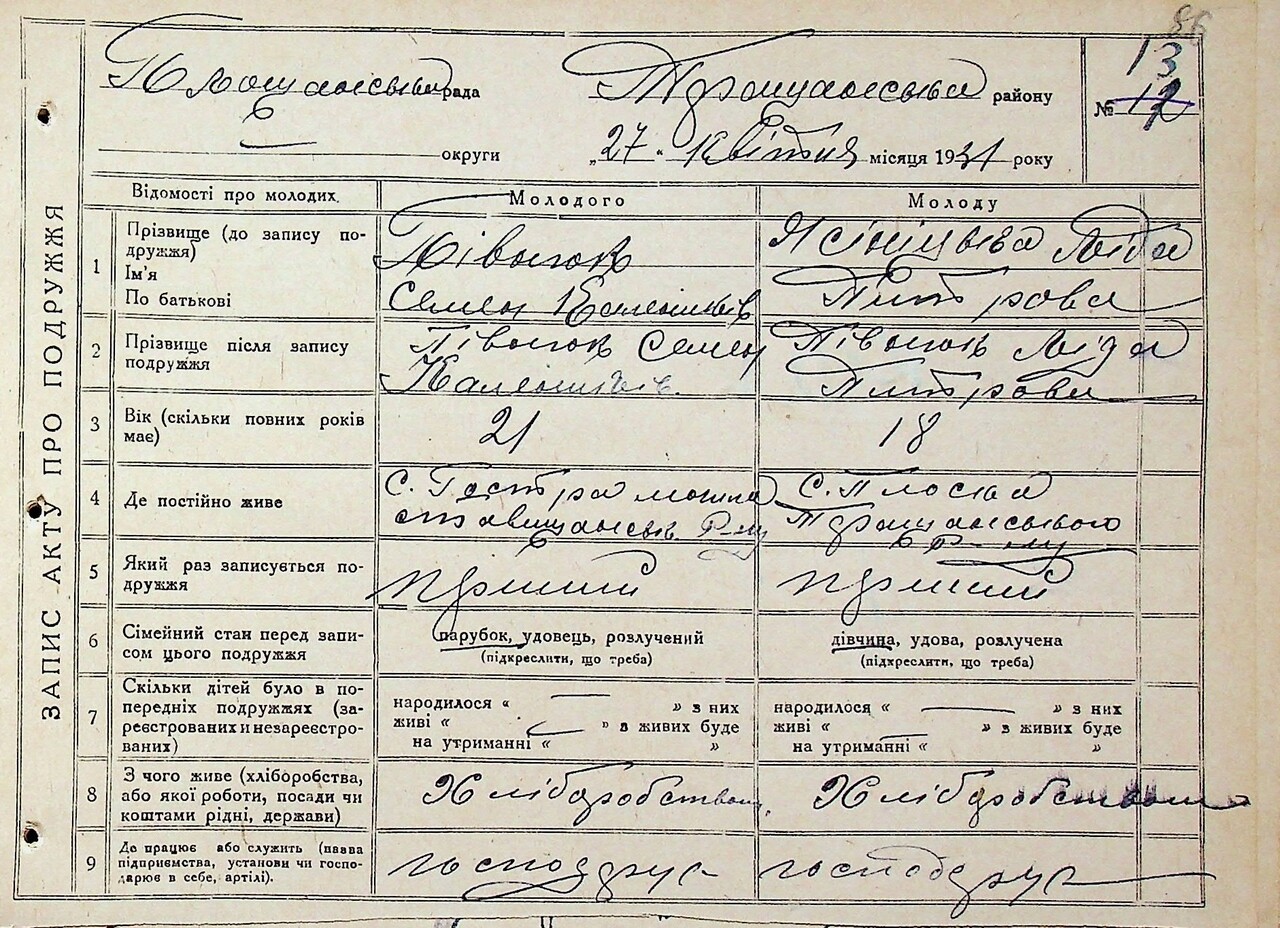 86
ЗАПИС АКТУ ПРО ПОДРУЖЖЯ
Площанська рада
Трощанська району
№ 12 13
округи
„27“ Квітня місяця 1931 року
Відомості про молодих.
Молодого
Молоду
1
Прізвище (до запису подружжя)
Ім'я
По батькові
Півнюк
Семен
Ліда
Питрова
2
Прізвище після запису
подружжя
Півнюк Семен
Півнюк Ліда
Питрова
3
Вік (скільки повних років
має)
21
18
4
Де постійно живе
С. Гостра могила
ставищанськ р-ну
С. Плоска
Трощанського
р-ну
5
Який раз записується по-
дружжя
перший
перший
6
Сімейний стан перед запи-
сом цього подружжя
парубок, удовець, розлучений
(підкреслити, що треба)
дівчина, удова, розлучена
(підкреслити, що треба)
7
Скільки дітей було в по-
передніх подружжях (за-
реєстрованих и незареєстро-
ваних)
народилося “ — ” з них
живі “ — ” з живих буде
на утриманні “ ”
народилося “ — ” з них
живі “ ” з живих буде
на утриманні “ ”
8
З чого живе (хліборобства,
або якої роботи, посади чи
коштами рідні, держави)
Хліборобством
Хліборобством
9
Де працює або служить (назва
підприємства, установи чи госпо-
дарює в себе, артілі).
господрує
господрує